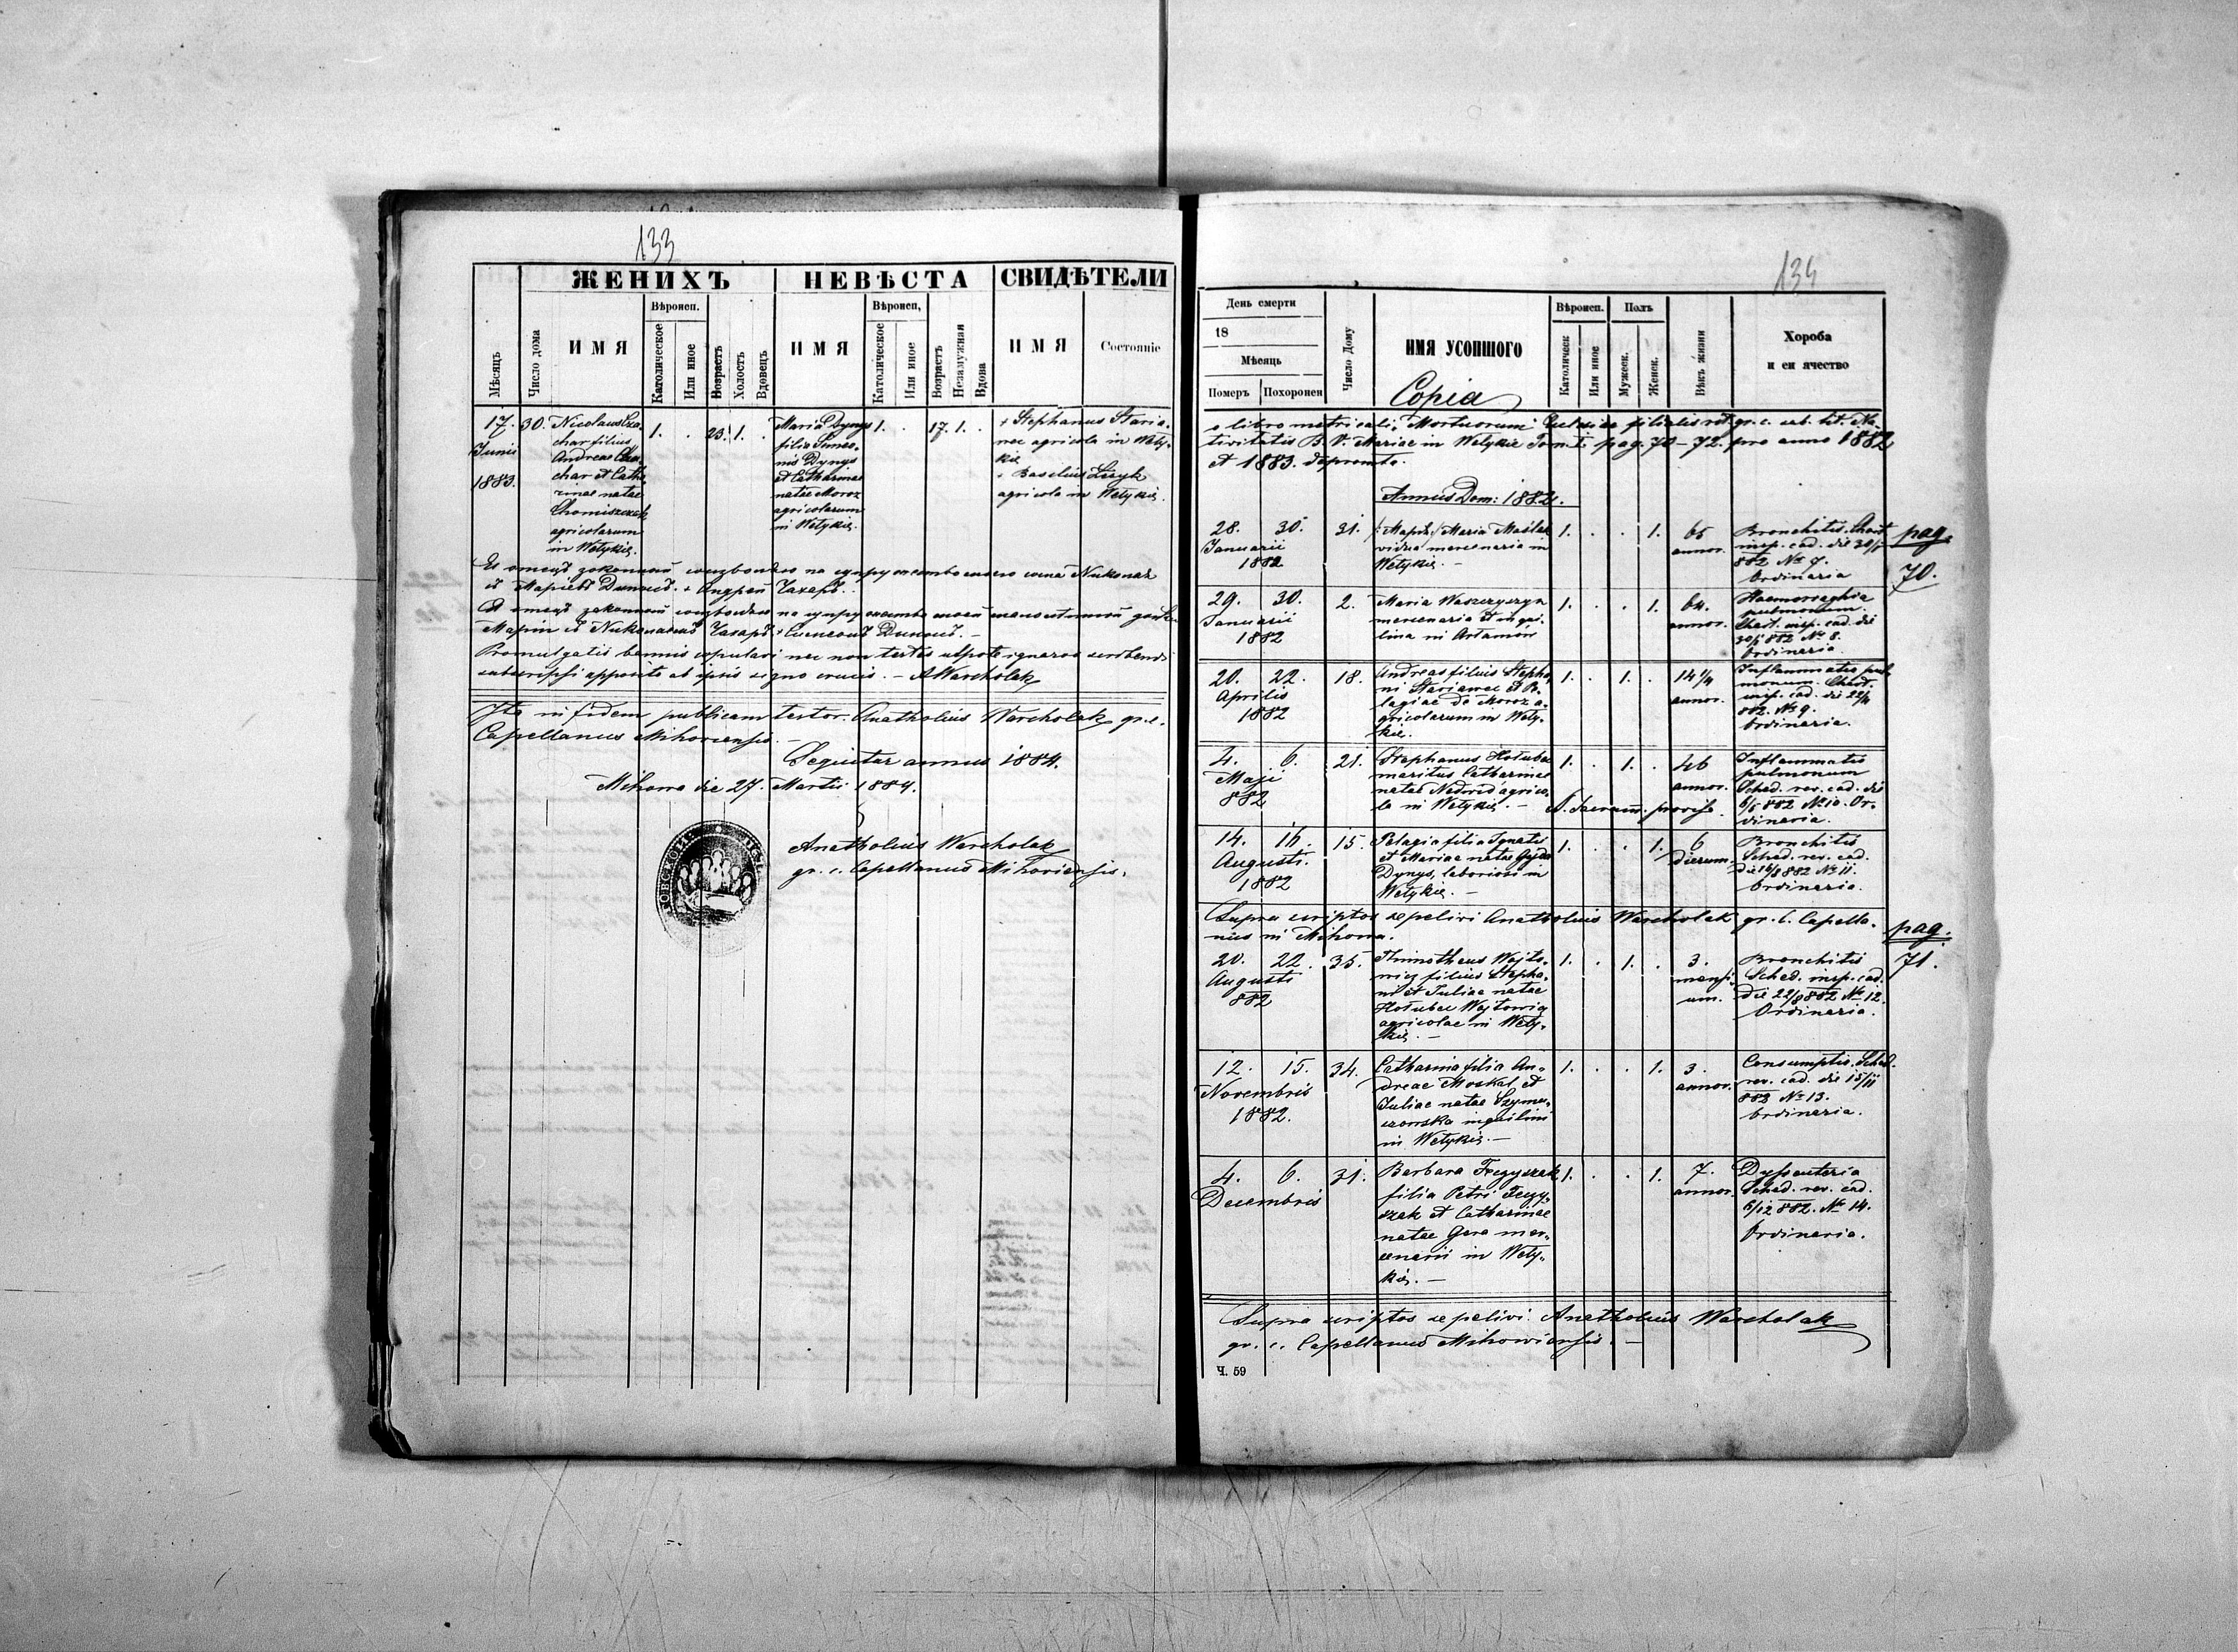 133
ЖЕНИХЪ НЕВѢСТА СВИДѢТЕЛИ
Мѣсяцъ
Число дома
ИМЯ
Вѣроисп.
Католическое
Или иное
Возрастъ
Холостъ
Вдовецъ
ИМЯ
Вѣроисп.
Католическое
Или иное
Возрастъ
Незамужная
Вдова
ИМЯ
Состояніе
17.
Junii
1883.
30.
Nicolaus Cza
char filius
Andreae Cza
char et Catha
rinae natae
Chomiszczak
agricolarum
in Wełykie.
1. . 23. 1. .
Maria Dynys
filia Simeo
nis Dynys
et Catharinae
natae Moroz
agricolarum
in Wełykie.
1. . 17. 1. .
+ Stephanus Staria
nec agricola in Weły
kie
+ Basilius Łszyk
agricola in Wełykie.
Promulgatis bannis copulavi nec non testes utpote ignaros scribendi
subscripsi apposito ab ipsis signo crucis. — AWarcholak
Ita in fidem publicam testor. Anatholius Warcholak gr. c.
Capellanus Mihoviensis. —
Sequitur annus 1884.
Mihowa die 27. Martii 1884.
Anatholius Warcholak
gr. c. Capellanus Mihoviensis.
134
День смерти
18
Мѣсяць
Померъ Похоронен
Число Дому
ИМЯ УСОПШОГО
Вѣроисп.
Католическ
Или иное
Полъ
Мужеск.
Женск.
Вѣкъ жизни
Хороба
и еи ячество
Copia
e libro metricali Mortuorum Ecclesiae filialis rit. gr. c. sub. tit. Na
tivitatis B. V. Mariae in Wełykie Tom. I. pag. 70–72. pro anno 1882
et 1883. deprompta.
Annus Dom: 1882.
28. 30.
Januarii
1882
31.
Maria Maślak
vidua mercenaria in
Wełykie. —
1. . . 1.
65
annor.
Bronchitis. Chart.
insp. cad. die 30/1
882 No 7.
Ordinaria
pag.
70.
29. 30.
Januarii
1882
2.
Maria Waszczyszyn
mercenaria et inqui
lina in Artamów
1. . . 1.
64.
annor.
Haemorraghia
pulmonum.
Chart. insp. cad. die
30/1 882 No 8.
Ordinaria.
20. 22.
Aprilis
1882
18.
Andreas filius Stepha
ni Starianec et Pe
lagiae de Moroz a
gricolarum in Wely
kie.
1. . 1. .
14 1/4
annor.
Inflammatio pul
monum. Chart.
insp. cad. die 22/4
882. No 9.
Ordinaria.
4. 6.
Maji
882
21.
Stephanus Hołubec
maritus Catharinae
natae Nedowid agrico
la in Wełykie. —
S. Sacram. provis.
1. . 1. .
46
annor.
Inflammatio
pulmonum
Sched. rev. cad. die
6/5 882 No 10. Or
dinaria.
14. 16.
Augusti.
1882
15.
Pelagia filia Ignatii
et Mariae natae Gajda
Dynys, laboriosi in
Wełykie. —
1. . . 1.
6
dierum.
Bronchitis
Sched. rev. cad.
die 16/8 882 No 11.
Ordinaria.
Supra scriptos sepelivi Anatholius Warcholak gr. c. Capella
nus in Mihowa.
pag.
71.
20. 22.
Augusti
882
35.
Thimotheus Wojto
wicz filius Stepha
ni et Juliae natae
Hołubec Wojtowicz
agricolae in Wely
kie. —
1. . 1. .
3.
mensi
um.
Bronchitis
Sched. insp. cad.
die 22/8 882 No 12.
Ordinaria.
12. 15.
Novembris
1882.
34.
Catharina filia An
dreae Moskal et
Juliae natae Szymu
szonska inquilini
in Wełykie. —
1. . . 1.
3.
annor.
Consumptio. Sched.
rev. cad. die 15/11
882 No 13.
Ordinaria.
4. 6.
Decembris
31.
Barbara Fegyszak
filia Petri Fegy
szak et Catharinae
natae Gera mer
cenarii in Wely
kie. —
1. . . 1.
7.
annor.
Dyssenteria
Sched. rev. cad.
6/12 882. No 14.
Ordinaria.
Supra scriptos sepelivi Anatholius Warcholak
gr. c. Capellanus Mihowiensis. —
Ч. 59